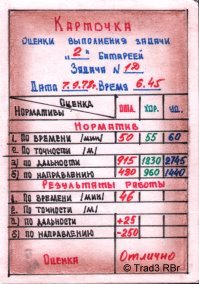 Карточка
оценки выполнения задачи
„2" батареей
Задача №
Дата 7.9.78. Время 6.45
Оценка
Нормативы
отл. хор. уд.
Норматив
1. По времени /мин/ 50 55 60
2. По точности /м/
а) по дальности 915 1830 2745
б) по направлению 480 960 1440
Результаты работы
1. По времени /мин/ 46
2. По точности /м/
а) по дальности +25
б) по направлению -250
Оценка Отлично
© Trad3 RBr